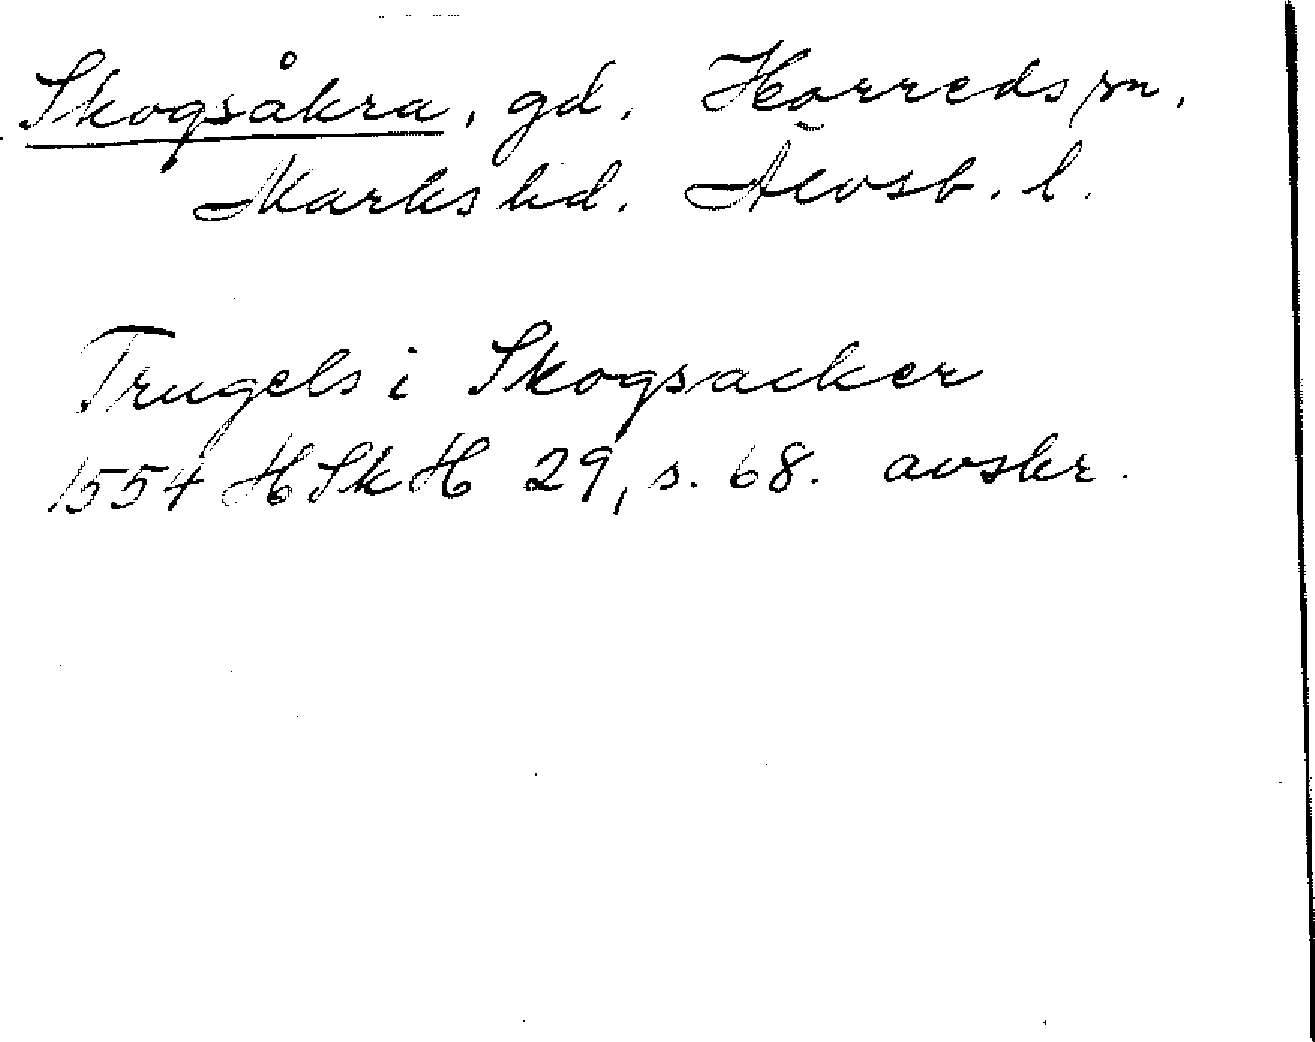 Skogsåkra, gd. Horreds sn.
Marks hd. Älvsb. l.
Trugels i Skogsacker
1554 HSkH 29, s. 68. avskr.